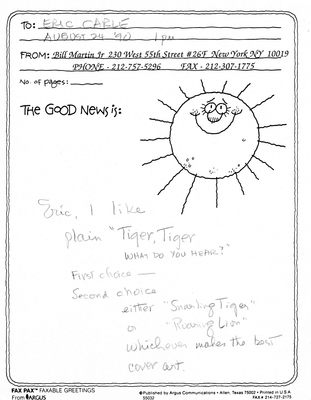 TO: ERIC CARLE
AUGUST 24 '90 1 pm
FROM: Bill Martin Jr 230 West 55th Street #26F New York NY 10019
PHONE - 212-757-5296 FAX - 212-307-1775
No. of pages:
THE GOOD NEWS is:
Eric, I like
plain "Tiger, Tiger
WHAT DO YOU HEAR?"
First choice —
Second choice
either "Snarling Tiger"
or "Roaring Lion"
whichever makes the best
cover art.
FAX PAX™ FAXABLE GREETINGS
From ARGUS
©Published by Argus Communications • Allen, Texas 75002 • Printed in U.S.A.
55032
FAX # 214-727-2175